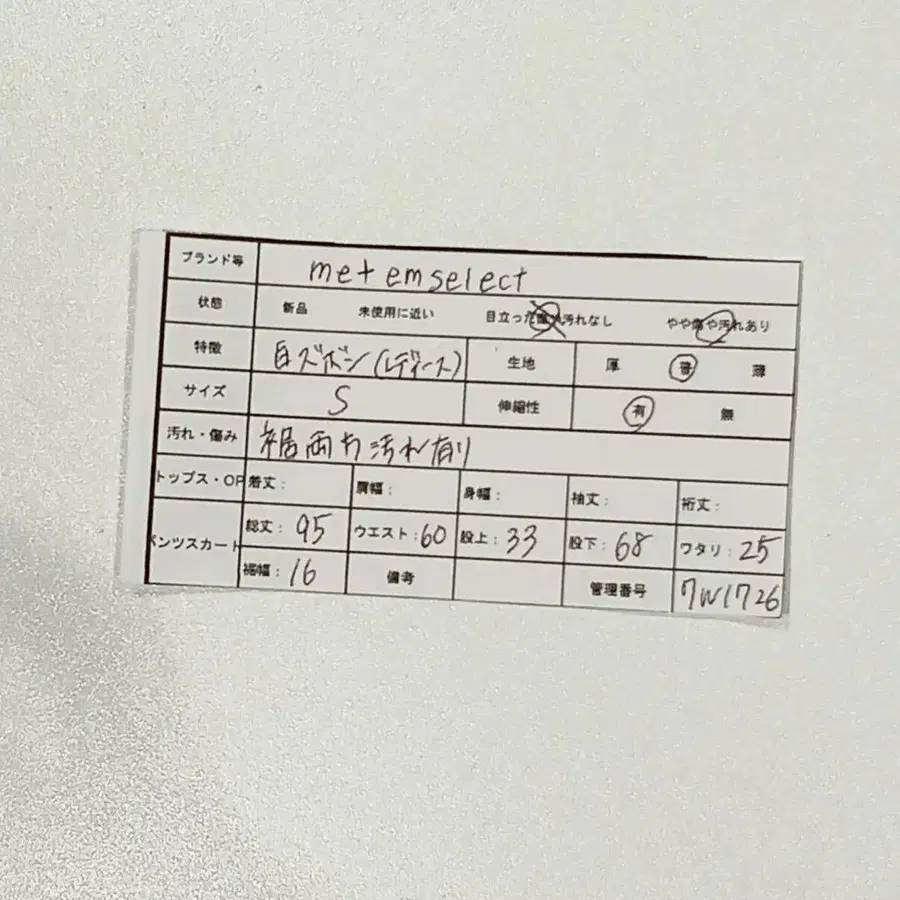 ブランド等 met em select
状態 新品 未使用に近い 目立った傷や汚れなし やや傷や汚れあり
特徴 白ズボン(レディース) 生地 厚 普 薄
サイズ S 伸縮性 有 無
汚れ・傷み 裾両方汚れ有り
トップス・OP 着丈: 肩幅: 身幅: 袖丈: 裄丈:
パンツスカート 総丈: 95 ウエスト: 60 股上: 33 股下: 68 ワタリ: 25
裾幅: 16 備考 管理番号 7W1726